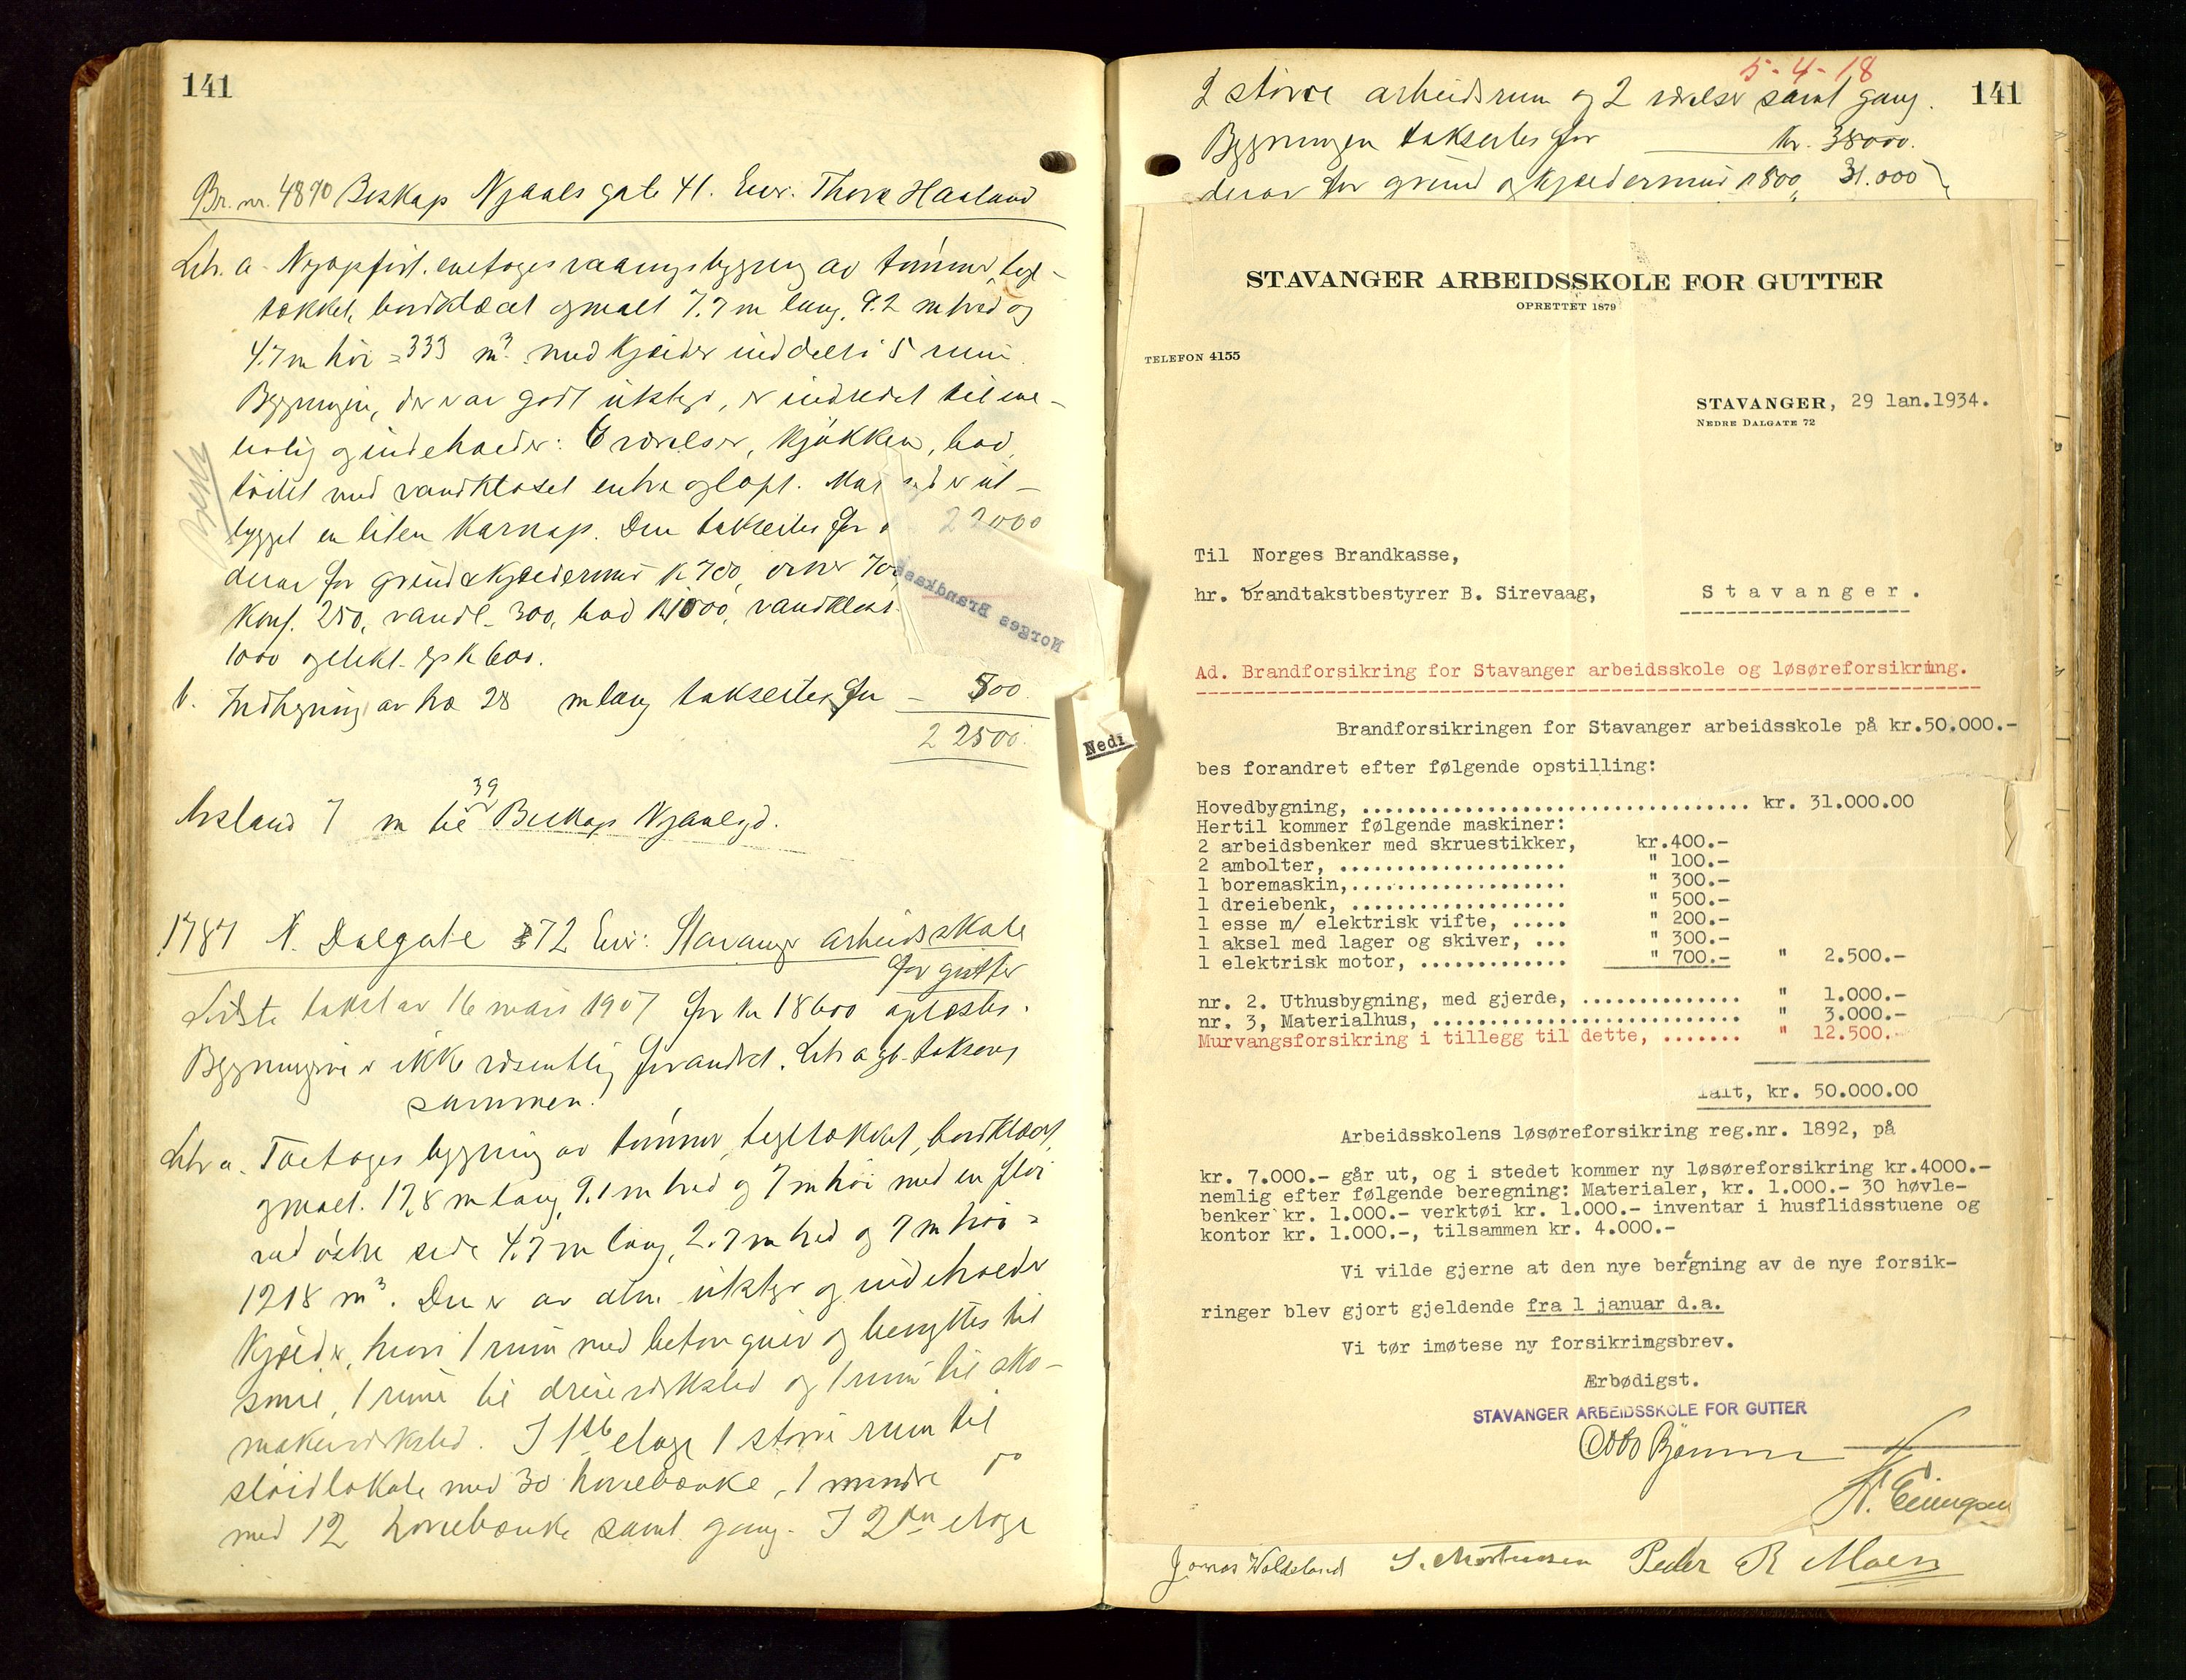 141
Br. nr. 4890 Biskop Njaals gate 41. Eier: Thora Haaland
Litr. a - Nyopført enetages vaaningsbygning av tømmer, tegl-
tækket, bordklædt og malt 7.7 m lang, 9.2 m bred og
4.7 m høi = 333 m³ med kjælder inddelt i 5 rum.
Bygningen, der er av godt utstyr, er indredet til ene-
bolig og indeholder: 6 værelser, kjøkken, bad,
toilet med vandkloset entre og loft. er ut-
bygget en liten karnap. Den takseres for 22000
derav for grund & kjældermur k 700, ovner 700
Komf. 250, vandl. 300, bad k 1000, vandklos.
1000 og elekt. k 600.
Norges Brandkasse
b. Indhegning av træ 28 m lang takseres for - 500.
22500.
Avstand 7 m til 39 Biskop Njaalsgd.
1787 N. Dalgate 72 Eier: Stavanger arbeidsskole
for gutter
Sidste takst av 16 mars 1907 for kr 18600 oplæstes.
Bygningene er ikke væsentlig forandret. Litr a & b takseres
sammen.
Litr a. Toetages bygning av tømmer, tegltækket, bordklædt
og malt. 17,8 m lang, 9.1 m bred og 7 m høi med en fløi
ved østre side 4.7 m lang, 2.7 m bred og 7 m høi =
1218 m³. Den er av alm. utstyr og indeholder
Kjælder, hvori 1 rum med betongulv og benyttes til
smie, 1 rum til dreieverksted og 1 rum til sko-
makerverksted. I 1ste etage 1 større rum til
sløidlokale med 30 høvlebænke, 1 mindre do
med 12 høvlebænke samt gang. I 2den etage
Nedi
5-4-18
141
2 større arbeidsrum og 2 værelser samt gang.
Bygningen takseres for kr. 38000.
derav for grund og kjældermur k 1800, 31.000
STAVANGER ARBEIDSSKOLE FOR GUTTER
OPRETTET 1879
TELEFON 4155
STAVANGER, 29 Ian.1934.
NEDRE DALGATE 72
Til Norges Brandkasse,
hr. brandtakstbestyrer B. Sirevaag, Stavanger.
Ad. Brandforsikring for Stavanger arbeidsskole og løsøreforsikring.
Brandforsikringen for Stavanger arbeidsskole på kr.50.000.-
bes forandret efter følgende opstilling:
Hovedbygning, .................................. kr. 31.000.00
Hertil kommer følgende maskiner:
2 arbeidsbenker med skruestikker, kr.400.-
2 ambolter, .................... " 100.-
1 boremaskin,................... " 300.-
1 dreiebenk, ................... " 500.-
1 esse m/ elektrisk vifte, ..... " 200.-
1 aksel med lager og skiver, ... " 300.-
1 elektrisk motor, ............. " 700.- " 2.500.-
nr. 2. Uthusbygning, med gjerde, .............. " 1.000.-
nr. 3, Materialhus, ........................... " 3.000.-
Murvangsforsikring i tillegg til dette, ....... " 12.500.-
Ialt, kr. 50.000.00
Arbeidsskolens løsøreforsikring reg.nr. 1892, på
kr. 7.000.- går ut, og i stedet kommer ny løsøreforsikring kr.4000.-
nemlig efter følgende beregning: Materialer, kr. 1.000.- 30 høvle-
benker kr. 1.000.- verktøi kr. 1.000.- inventar i husflidsstuene og
kontor kr. 1.000.-, tilsammen kr. 4.000.-
Vi vilde gjerne at den nye beregning av de nye forsik-
ringer blev gjort gjeldende fra 1 januar d.a.
Vi tør imøtese ny forsikringsbrev.
Ærbødigst.
STAVANGER ARBEIDSSKOLE FOR GUTTER
Jonas Woldeland S. Mortensen Peder R Moen